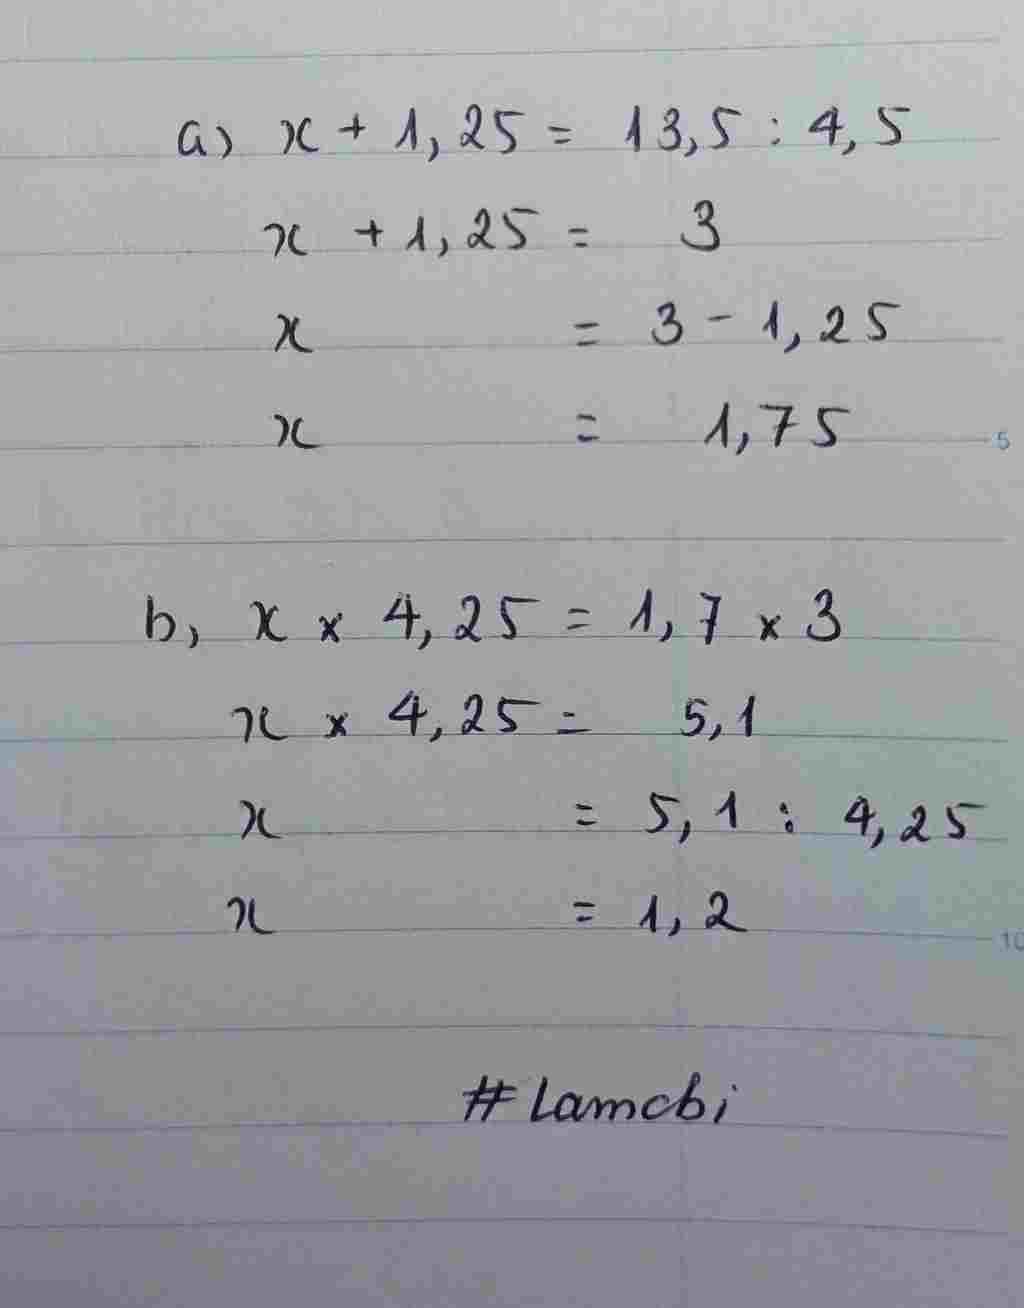 a) x + 1,25 = 13,5 : 4,5
x + 1,25 = 3
x = 3 - 1,25
x = 1,75
5
b, x × 4,25 = 1,7 × 3
x × 4,25 = 5,1
x = 5,1 : 4,25
x = 1,2
10
# Lamcbi